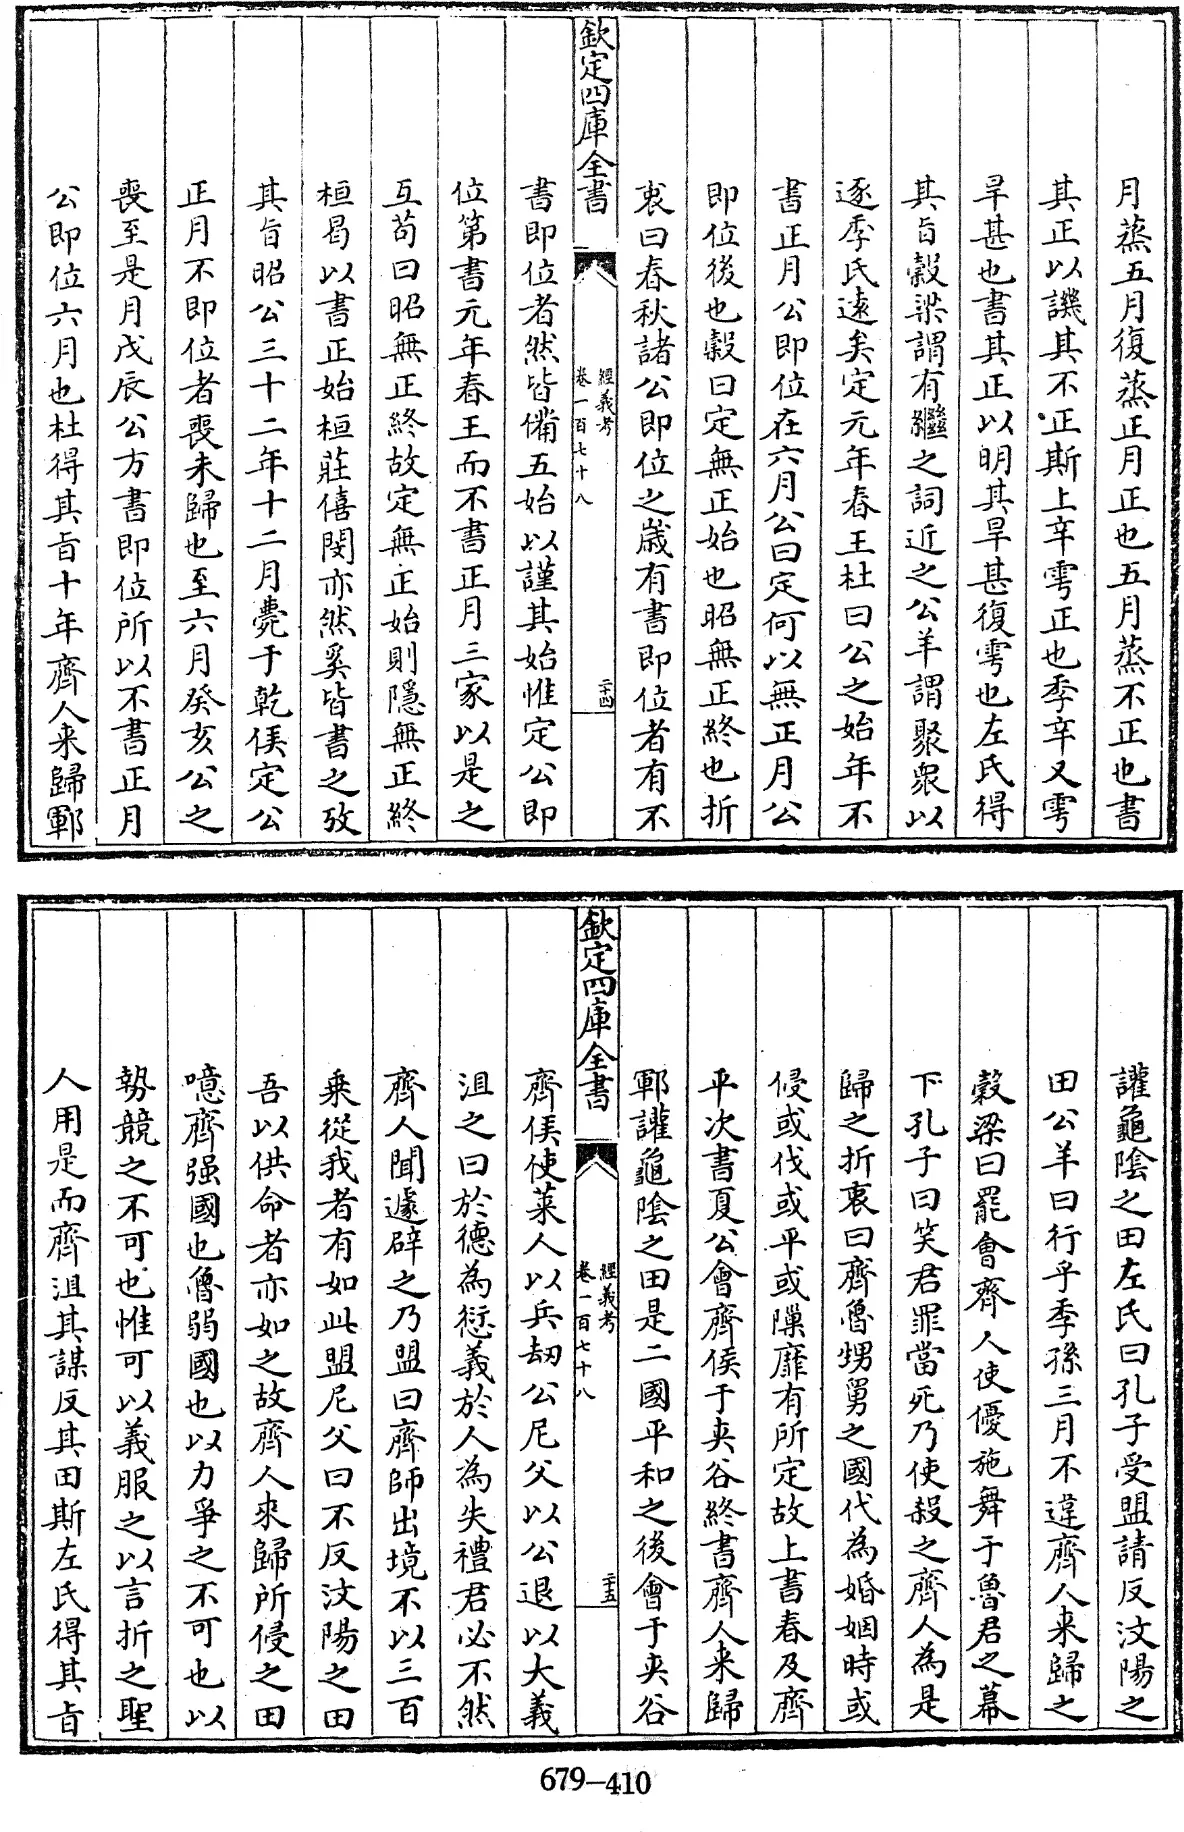 月蒸五月復蒸正月正也五月蒸不正也書
其正以譏其不正斯上辛雩正也季辛又雩
旱甚也書其正以明其旱甚復雩也左氏得
其旨穀梁謂有繼之詞近之公羊謂聚衆以
逐季氏遠矣定元年春王杜曰公之始年不
書正月公即位在六月公曰定何以無正月公
即位後也穀曰定無正始也昭無正終也折
衷曰春秋諸公即位之歲有書即位者有不
欽定四庫全書
經義考
卷一百七十八
二十四
書即位者然皆備五始以謹其始惟定公即
位第書元年春王而不書正月三家以是之
互苟曰昭無正終故定無正始則隱無正終
桓曷以書正始桓莊僖閔亦然奚皆書之攷
其旨昭公三十二年十二月薨于乾侯定公
正月不即位者喪未歸也至六月癸亥公之
喪至是月戊辰公方書即位所以不書正月
公即位六月也杜得其旨十年齊人来歸鄆
讙龜陰之田左氏曰孔子受盟請反汶陽之
田公羊曰行乎季孫三月不違齊人来歸之
穀梁曰罷會齊人使優施舞于魯君之幕
下孔子曰笑君罪當死乃使殺之齊人為是
歸之折衷曰齊魯甥舅之國代為婚姻時或
侵或伐或平或隟靡有所定故上書春及齊
平次書夏公會齊侯于夾谷終書齊人来歸
鄆讙龜陰之田是二國平和之後會于夾谷
欽定四庫全書
經義考
卷一百七十八
二十五
齊侯使萊人以兵刼公尼父以公退以大義
沮之曰於德為愆義於人為失禮君必不然
齊人聞遽辟之乃盟曰齊師出境不以三百
乗從我者有如此盟尼父曰不反汶陽之田
吾以供命者亦如之故齊人來歸所侵之田
噫齊强國也魯弱國也以力爭之不可也以
勢競之不可也惟可以義服之以言折之聖
人用是而齊沮其謀反其田斯左氏得其旨
679—410